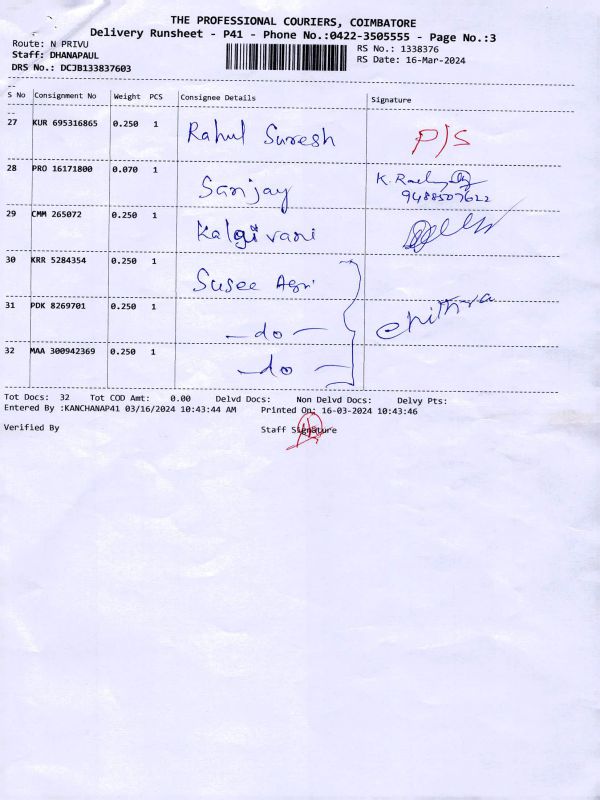 THE PROFESSIONAL COURIERS, COIMBATORE
Delivery Runsheet - P41 - Phone No.:0422-3505555 - Page No.:3
Route: N PRIVU
RS No.: 1338376
Staff: DHANAPAUL
RS Date: 16-Mar-2024
DRS No.: DCJB133837603
S No Consignment No Weight PCS Consignee Details Signature
27 KUR 695316865 0.250 1 Rahul Suresh P/S
28 PRO 16171800 0.070 1 Sanjay K.
9488507622
29 CMM 265072 0.250 1 vani
30 KRR 5284354 0.250 1 Susee Agri
31 PDK 8269701 0.250 1 -do- chithra
32 MAA 300942369 0.250 1 -do-
Tot Docs: 32 Tot COD Amt: 0.00 Delvd Docs: Non Delvd Docs: Delvy Pts:
Entered By :KANCHANAP41 03/16/2024 10:43:44 AM Printed On: 16-03-2024 10:43:46
Verified By Staff Signature